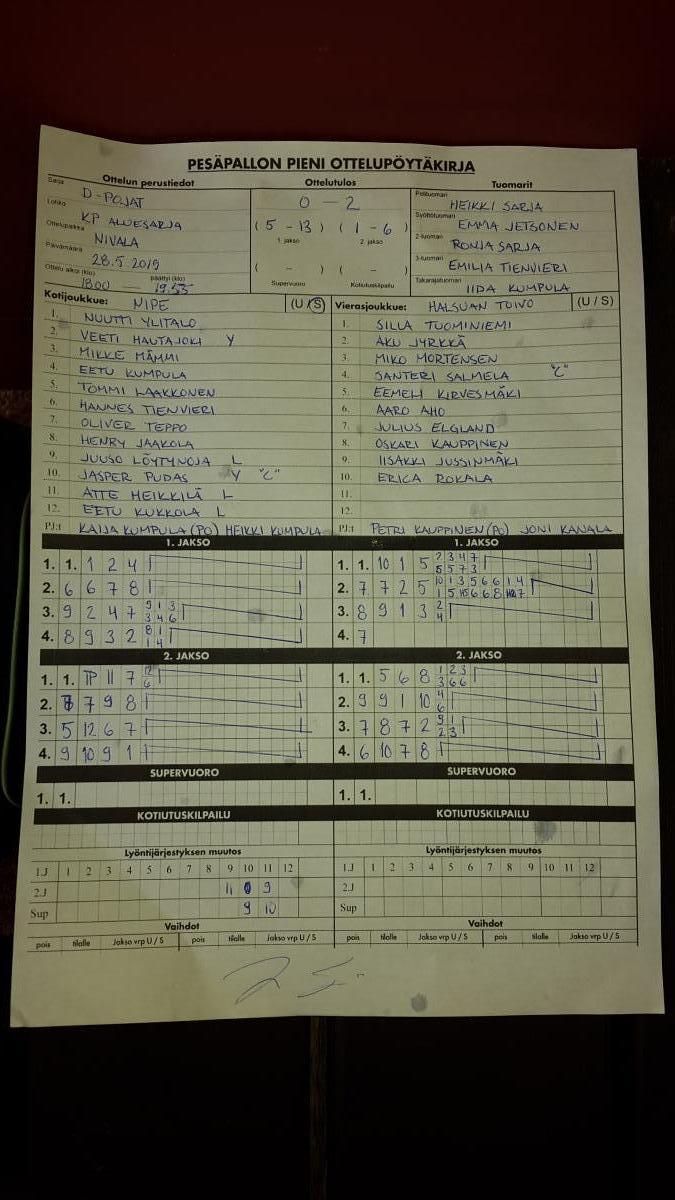 PESÄPALLON PIENI OTTELUPÖYTÄKIRJA
Ottelun perustiedot Ottelutulos Tuomarit
Sarja D-POJAT
Lohko KP ALUESARJA
Ottelupaikka NIVALA
Päivämäärä 28.5.2019
Ottelu alkoi (klo) päättyi (klo)
1800 — 19.53
0 - 2
( 5 - 13 ) ( 1 - 6 )
1 jakso 2 jakso
( - ) ( - )
Supervuoro Kotiutuskilpailu
Pelituomari HEIKKI SARJA
Syöttötuomari EMMA JETSONEN
2-tuomari RONJA SARJA
3-tuomari EMILIA TIENVIERI
Takarajatuomari IIDA KUMPULA
Kotijoukkue: NIPE (U/S)
1. NUUTTI YLITALO
2. VEETI HAUTAJOKI Y
3. MIKKE MÄMMI
4. EETU KUMPULA
5. TOMMI LAAKKONEN
6. HANNES TIENVIERI
7. OLIVER TEPPO
8. HENRY JAAKOLA
9. JUUSO LÖYTYNOJA L
10. JASPER PUDAS Y "C"
11. ATTE HEIKKILÄ L
12. EETU KUKKOLA L
PJ:t KAIJA KUMPULA (PO) HEIKKI KUMPULA
Vierasjoukkue: HALSUAN TOIVO (U / S)
1. SILLA TUOMINIEMI
2. AKU JYRKKÄ
3. MIKO MORTENSEN
4. SANTERI SALMELA "C"
5. EEMELI KIRVESMÄKI
6. AARO AHO
7. JULIUS ELGLAND
8. OSKARI KAUPPINEN
9. IISAKKI JUSSINMÄKI
10. ERICA ROKALA
11.
12.
PJ:t PETRI KAUPPINEN (PO) JONI KANALA
1. JAKSO
1. 1. 1 2 4
2. 6 6 7 8
3. 9 2 4 7 9 1 3
3 4 6
4. 8 9 3 2 8 1
1 4
2. JAKSO
1. 1. TP 11 7 12
6
2. 7 9 8
3. 5 12 6 7
4. 9 10 9 1
SUPERVUORO
1. 1.
KOTIUTUSKILPAILU
Lyöntijärjestyksen muutos
1.J 1 2 3 4 5 6 7 8 9 10 11 12
2.J 11 9
Sup 9 10
Vaihdot
pois tilalle Jakso vrp U / S pois tilalle Jakso vrp U / S
1. JAKSO
1. 1. 10 1 5 2 3 4 7
5 5 7 3
2. 7 7 2 5 10 1 3 5 6 6 1 4
1 5 6 6 8 7
3. 8 9 1 3 2
4
4. 7
2. JAKSO
1. 1. 5 6 8 1 2 3
3 6 6
2. 9 9 1 10 4
6
3. 7 8 7 2 9 1
2 3
4. 6 10 7 8
SUPERVUORO
1. 1.
KOTIUTUSKILPAILU
Lyöntijärjestyksen muutos
1.J 1 2 3 4 5 6 7 8 9 10 11 12
2.J
Sup
Vaihdot
pois tilalle Jakso vrp U / S pois tilalle Jakso vrp U / S